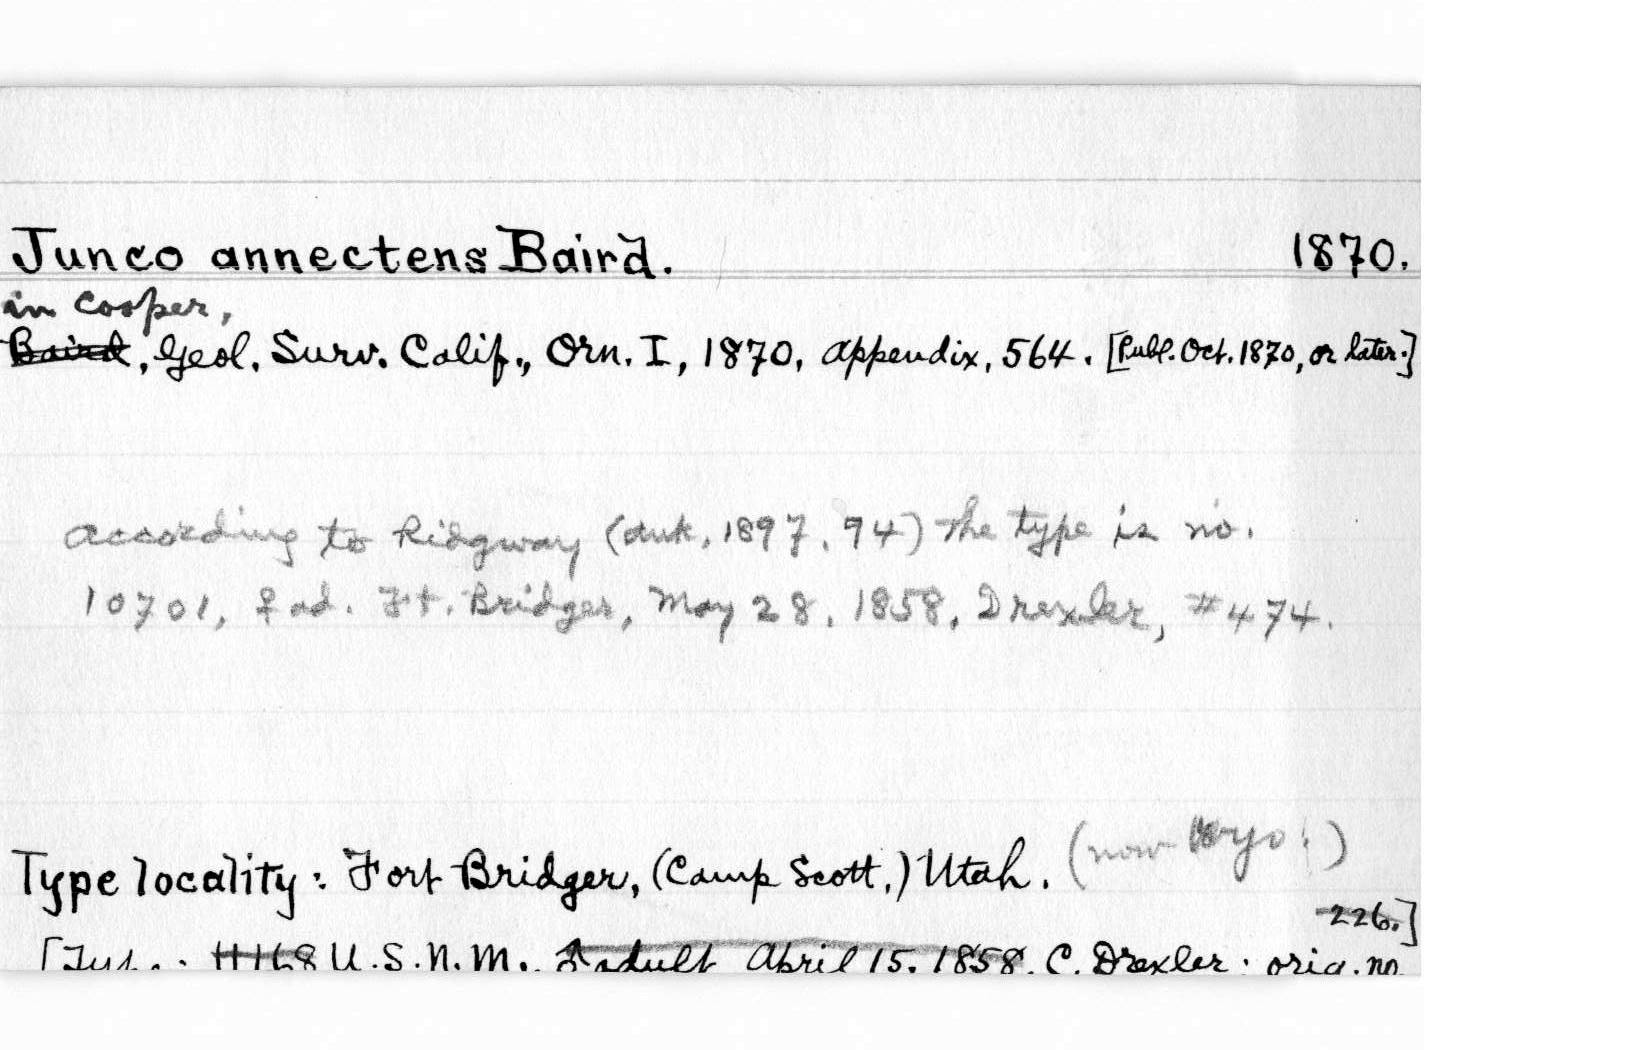 Junco annectens Baird. 1870.
in Cooper,
Baird, Geol. Surv. Calif., Orn. I, 1870, Appendix, 564. [Publ. Oct. 1870, or later.]
According to Ridgway (Auk, 1897, 94) the type is no.
10701, ♀ ad. Ft. Bridger, May 28, 1858, Drexler, #474.
Type locality: Fort Bridger, (Camp Scott,) Utah. (now Wyo!)
226.]
[Type: 11168 U.S.N.M., adult April 15, 1858. C. Drexler: orig. no.